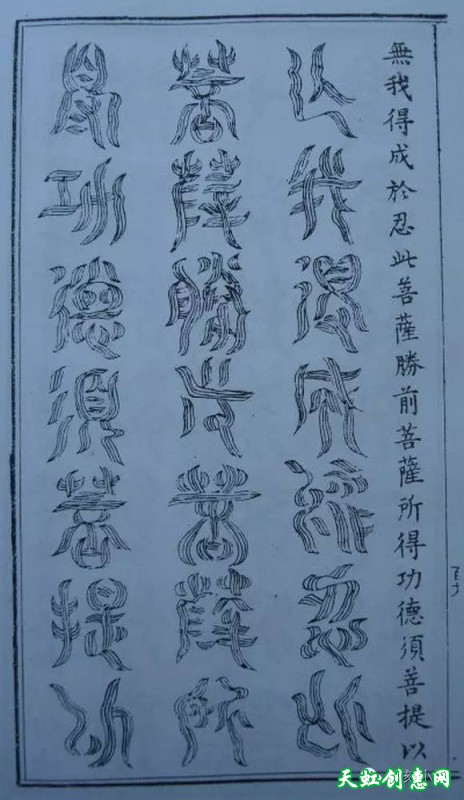 無我得成於忍此菩薩勝前菩薩所得功德須菩提以
無我得成於忍此
菩薩勝前菩薩所
得功德須菩提以
天虹创意网